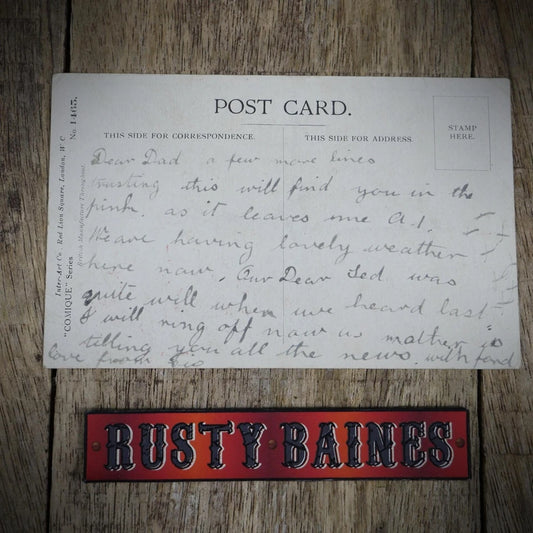 POST CARD.
THIS SIDE FOR CORRESPONDENCE.
THIS SIDE FOR ADDRESS.
STAMP
HERE.
Inter-Art Co Red Lion Square, London, W C
British Manufacture Throughout
"COMIQUE" Series
No. 1465.
Dear Dad a few more lines
trusting this will find you in the
pink. as it leaves me A.1.
We are having lovely weather
here now. Our Dear Ted was
quite will when we heard last
I will ring off now as mother is
telling you all the news. with fond
love from
RUSTY BAINES